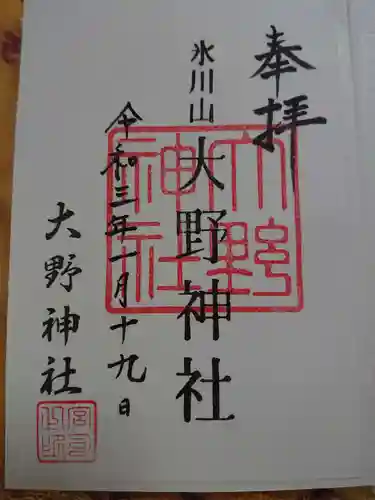 奉拝
氷川山
大野神社
大野神社
令和三年一月十九日
大野神社
宮司之印